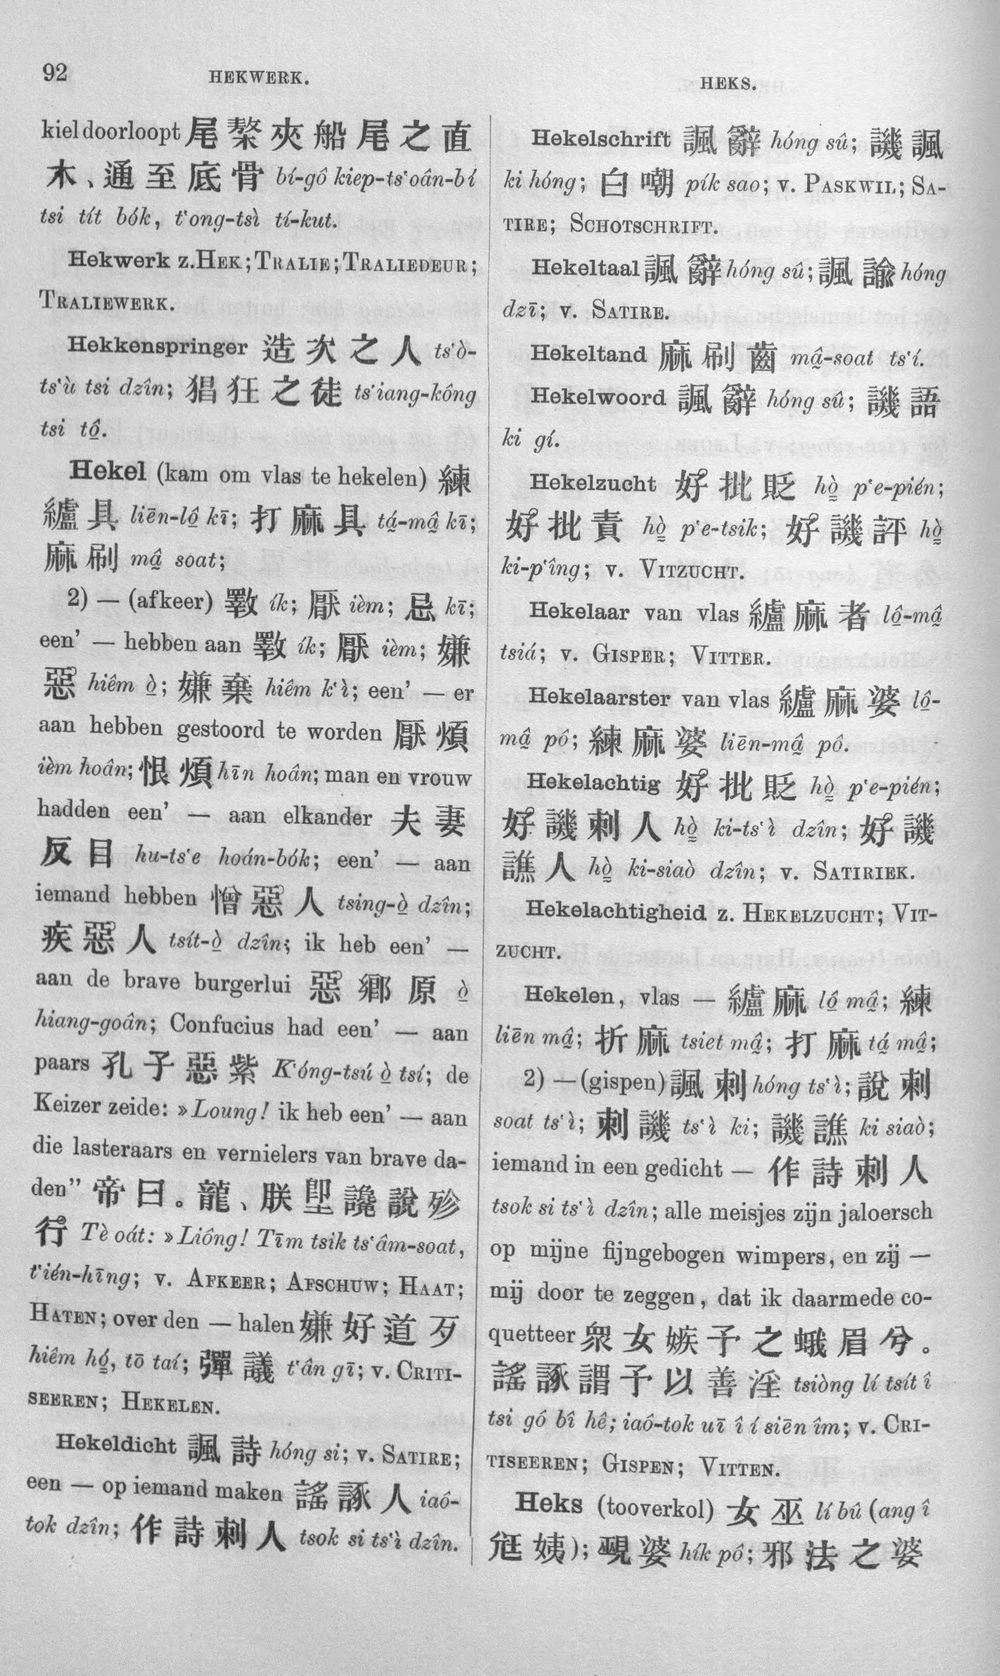 92
HEKWERK.
HEKS.
kiel doorloopt 尾棃夾船尾之直
木、通至底骨 bí-gô kiep-ts‘oân-bí
tsi tít bók, t‘ong-tsì tí-kut.
Hekwerk z. HEK; TRALIE; TRALIEDEUR;
TRALIEWERK.
Hekkenspringer 造次之人 ts‘ò-
ts‘ù tsi dzîn; 猖狂之徒 ts‘iang-kông
tsi tô.
Hekel (kam om vlas te hekelen) 練
纑具 liēn-lô kī; 打麻具 tá-mâ kī;
麻刷 mâ soat;
2) — (afkeer) 斁 ík; 厭 ièm; 忌 kī;
een’ — hebben aan 斁 ík; 厭 ièm; 嫌
惡 hiêm ò; 嫌棄 hiêm k‘ì; een’ — er
aan hebben gestoord te worden 厭煩
ièm hoân; 恨煩 hīn hoân; man en vrouw
hadden een’ — aan elkander 夫妻
反目 hu-ts‘e hoán-bók; een’ — aan
iemand hebben 憎惡人 tsing-ò dzîn;
疾惡人 tsít-ò dzîn; ik heb een’ —
aan de brave burgerlui 惡鄉原 ò
hiang-goân; Confucius had een’ — aan
paars 孔子惡紫 K‘óng-tsú ò tsí; de
Keizer zeide: »Loung! ik heb een’ — aan
die lasteraars en vernielers van brave da-
den” 帝曰。龍、朕堲讒說殄
行 Tè oát: »Liông! Tīm tsik ts‘âm-soat,
t‘ién-hīng; v. AFKEER; AFSCHUW; HAAT;
HATEN; over den — halen 嫌好道歹
hiêm hó, tō taí; 彈議 t‘ân gī; v. CRITI-
SEEREN; HEKELEN.
Hekeldicht 諷詩 hóng si; v. SATIRE;
een — op iemand maken 謠諑人 iaô-
tok dzîn; 作詩刺人 tsok si ts‘ì dzîn.
Hekelschrift 諷辭 hóng sû; 譏諷
ki hóng; 白嘲 pík sao; v. PASKWIL; SA-
TIRE; SCHOTSCHRIFT.
Hekeltaal 諷辭 hóng sû; 諷諭 hóng
dzī; v. SATIRE.
Hekeltand 麻刷齒 mâ-soat ts‘í.
Hekelwoord 諷辭 hóng sû; 譏語
ki gí.
Hekelzucht 好批貶 hò p‘e-pién;
好批責 hò p‘e-tsik; 好譏評 hò
ki-p‘îng; v. VITZUCHT.
Hekelaar van vlas 纑麻者 lô-mâ
tsiá; v. GISPER; VITTER.
Hekelaarster van vlas 纑麻婆 lô-
mâ pô; 練麻婆 liēn-mâ pô.
Hekelachtig 好批貶 hò p‘e-pién;
好譏刺人 hò ki-ts‘ì dzîn; 好譏
譙人 hò ki-siaò dzîn; v. SATIRIEK.
Hekelachtigheid z. HEKELZUCHT; VIT-
ZUCHT.
Hekelen, vlas — 纑麻 lô mâ; 練
liēn mâ; 折麻 tsiet mâ; 打麻 tá mâ;
2) — (gispen) 諷刺 hóng ts‘ì; 說刺
soat ts‘ì; 刺譏 ts‘ì ki; 譏譙 ki siaò;
iemand in een gedicht — 作詩刺人
tsok si ts‘ì dzîn; alle meisjes zijn jaloersch
op mijne fijngebogen wimpers, en zij —
mij door te zeggen, dat ik daarmede co-
quetteer 衆女嫉予之蛾眉兮。
謠諑謂予以善淫 tsiòng lí tsít î
tsi gô bî hê; iaô-tok uī î í siēn îm; v. CRI-
TISEEREN; GISPEN; VITTEN.
Heks (tooverkol) 女巫 lí bû (ang î
尫姨); 覡婆 hík pô; 邪法之婆